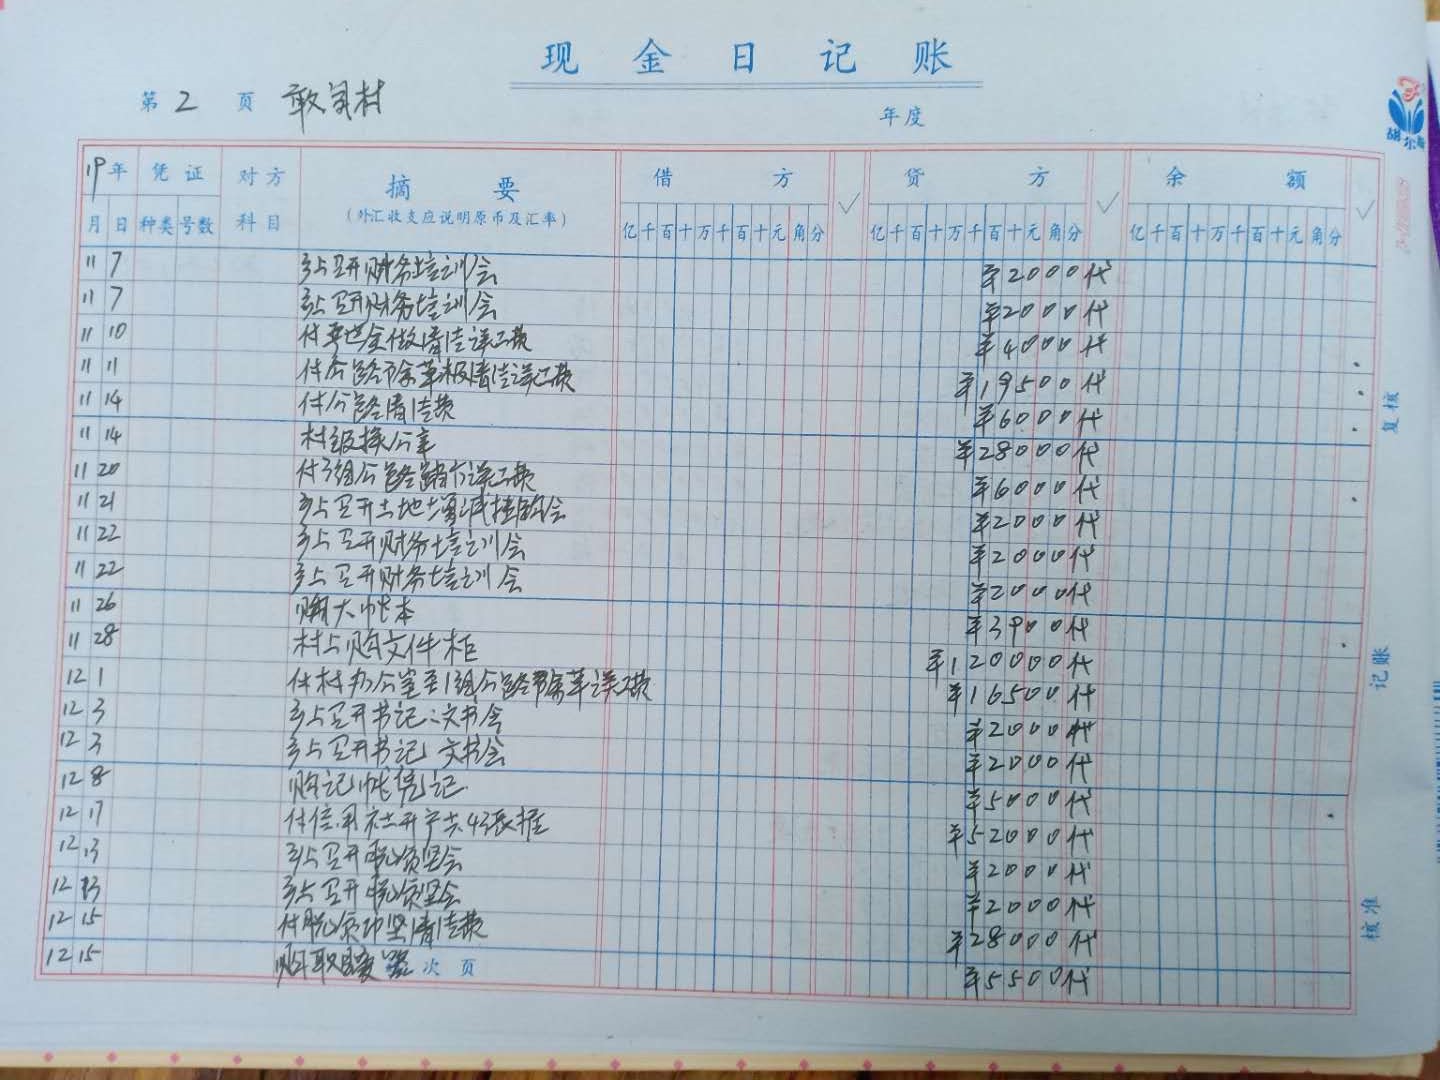 现金日记账
第 2 页 敢蜀村
年度
19年 凭证 对方科目 摘要 借方 贷方 余额
(外汇收支应说明原币及汇率)
月 日 种类 号数 亿千百十万千百十元角分 亿千百十万千百十元角分 亿千百十万千百十元角分
11 7 乡上召开财务培训会 ¥2000付
11 7 乡上召开财务培训会 ¥2000付
11 10 付 世全做清洁误工费 ¥4000付
11 11 付公路除草 清洁误工费 ¥19500付
11 14 付公路清洁费 ¥6000付
11 14 村级换公章 ¥28000付
11 20 付3组公路 误工费 ¥6000付
11 21 乡上召开土地增减挂钩会 ¥2000付
11 22 乡上召开财务培训会 ¥2000付
11 22 乡上召开财务培训会 ¥2000付
11 26 购大帐本 ¥3900付
11 28 村上购文件柜 ¥120000付
12 1 付村办公室至1组公路 除草误工费 ¥16500付
12 3 乡上召开书记、文书会 ¥2000付
12 3 乡上召开书记 文书会 ¥2000付
12 8 购记帐凭记 ¥5000付
12 17 付信用社开户 ¥52000付
12 13 乡上召开脱贫 坚会 ¥2000付
12 13 乡上召开脱贫 坚会 ¥2000付
12 15 付脱贫功坚清洁费 ¥28000付
12 15 购取暖器 次页 ¥5500付
复核
记账
核准